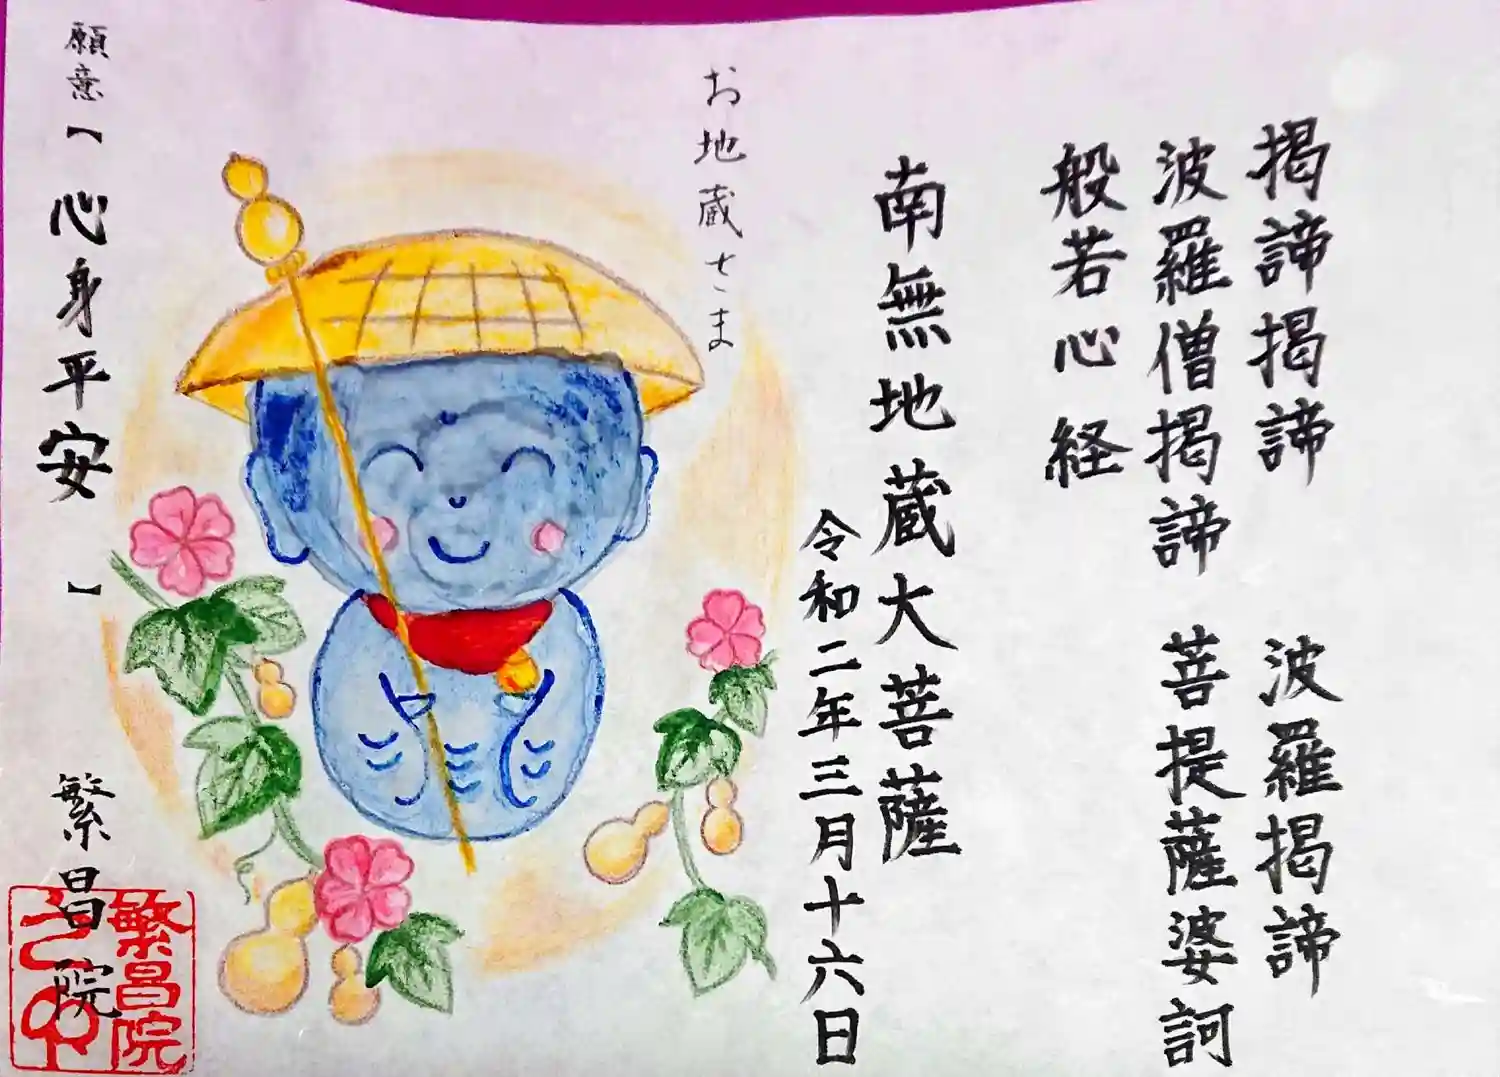 掲諦掲諦 波羅掲諦
波羅僧掲諦 菩提薩婆訶
般若心経
南無地蔵大菩薩
令和二年三月十六日
お地蔵さま
願意【 心身平安 】 繁昌院
繁昌院